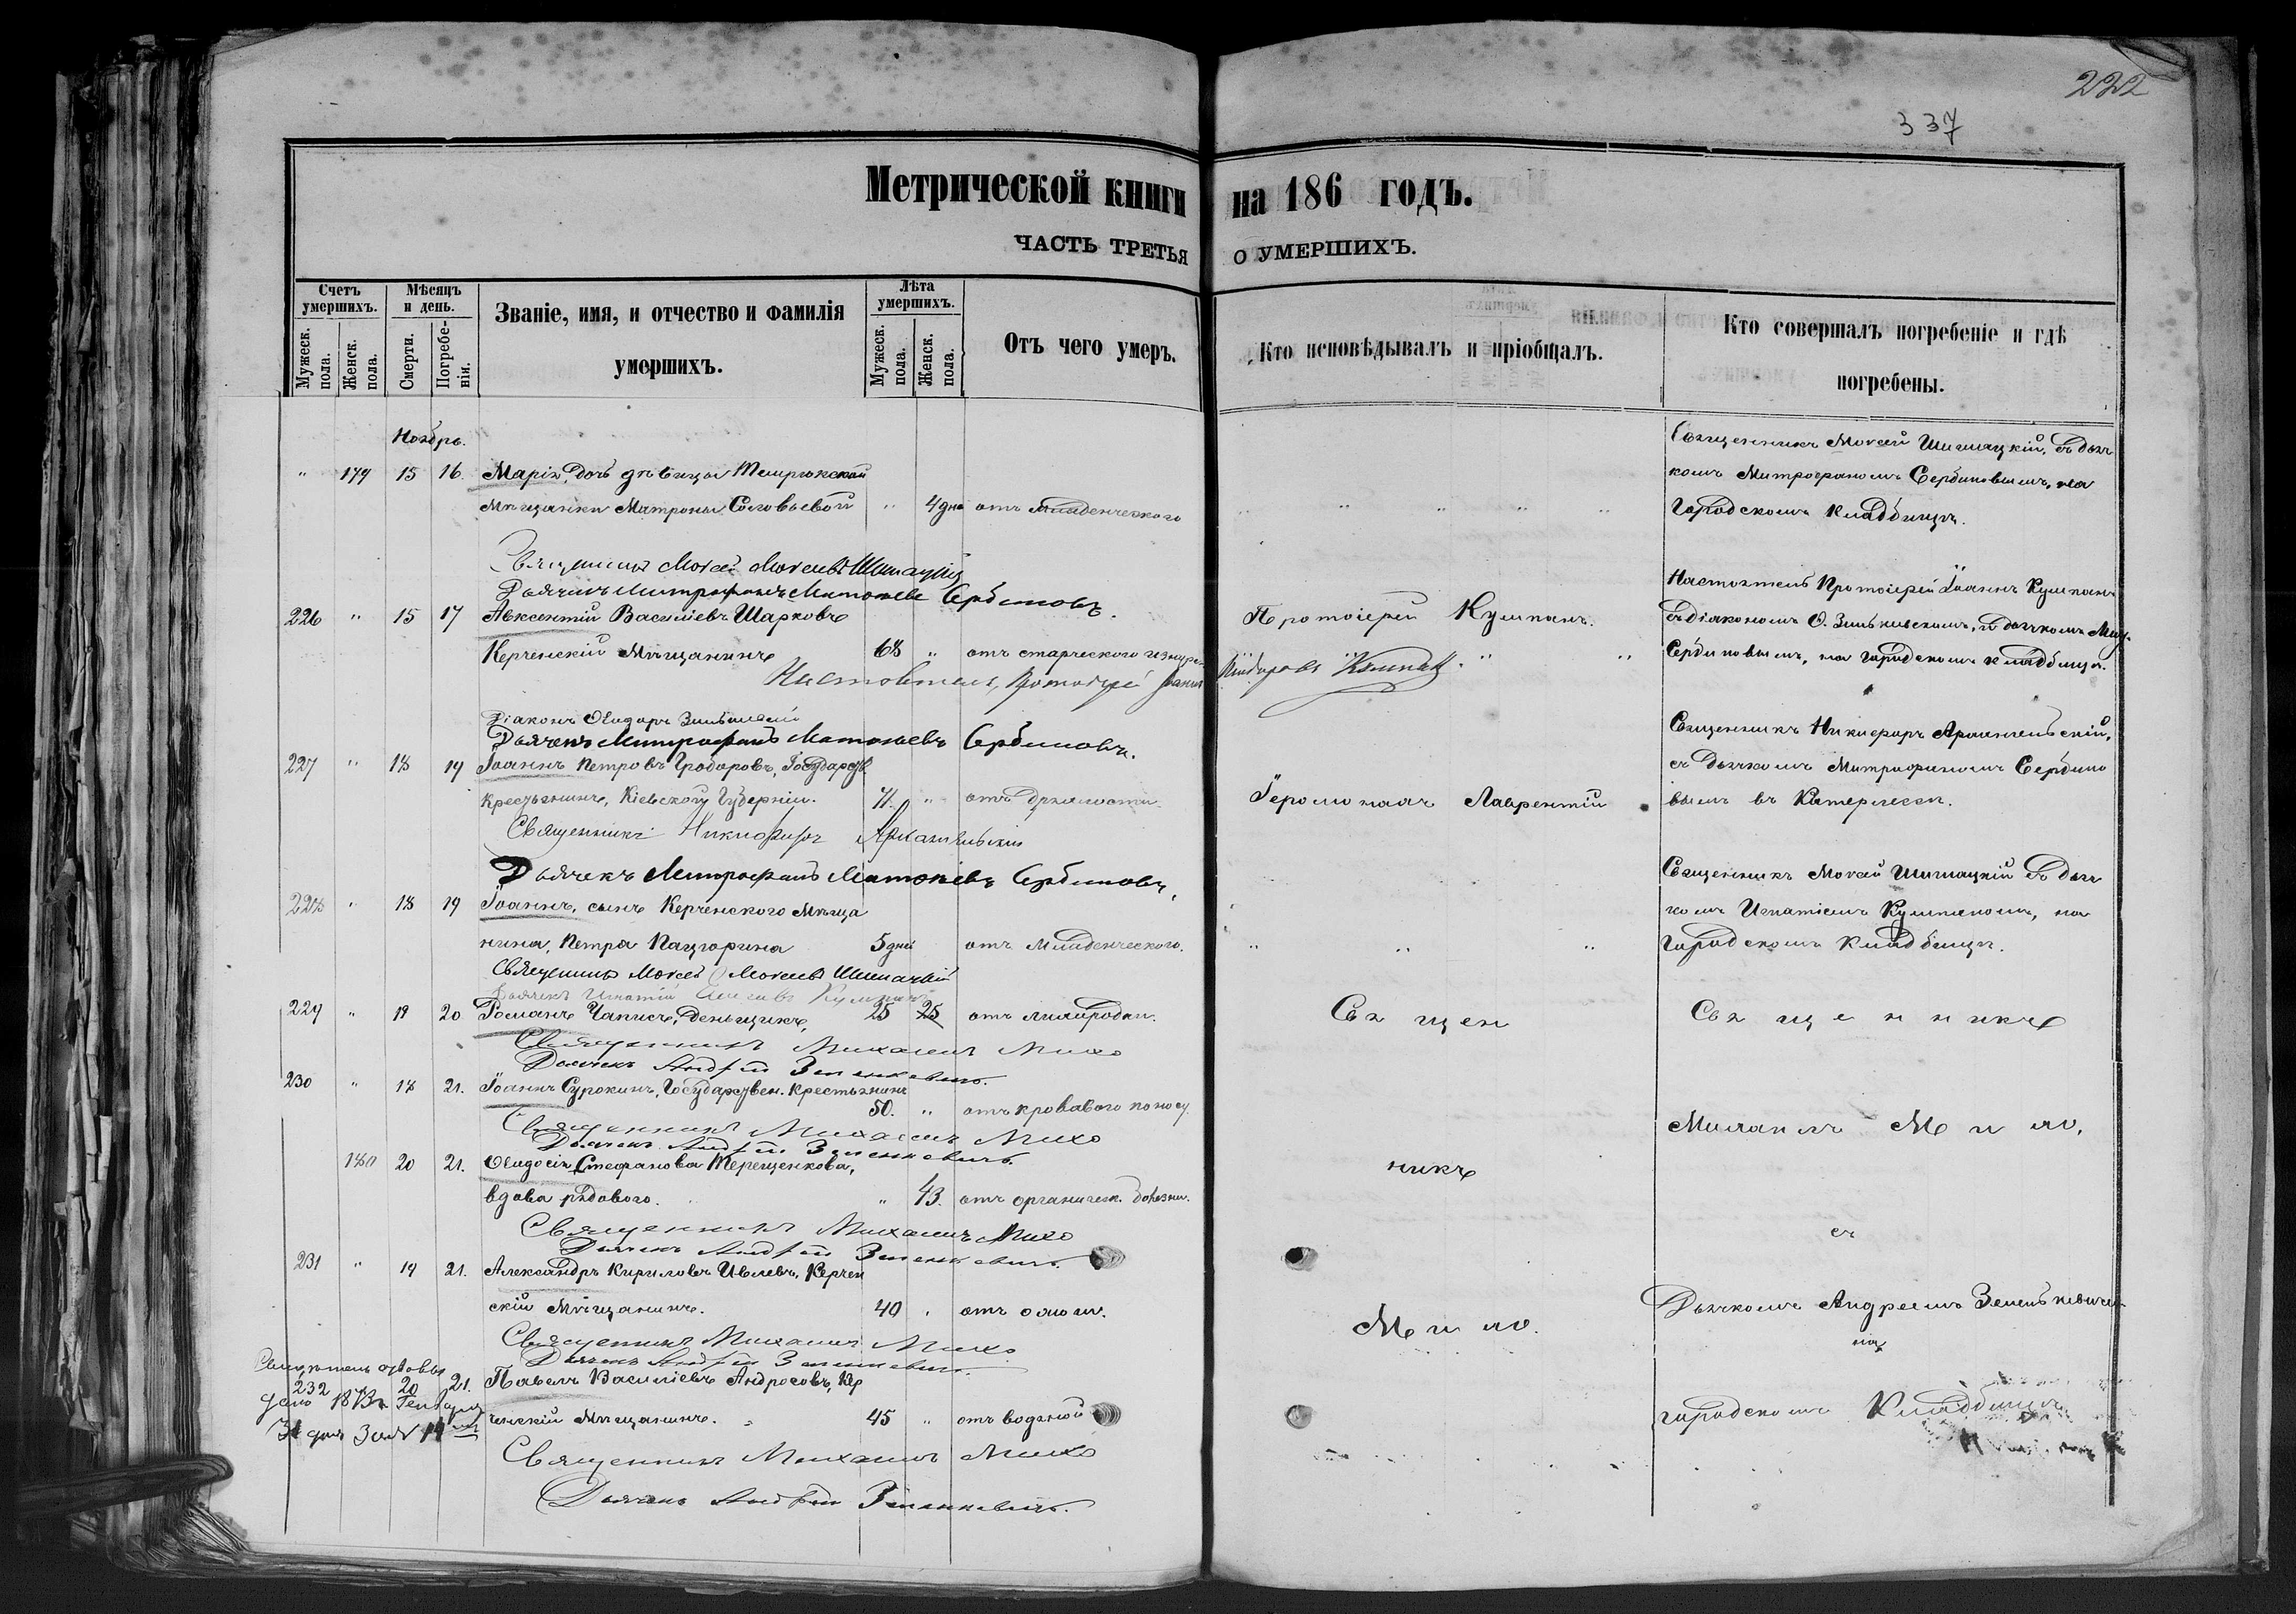 222
337
Метрической книги на 186 годъ.
ЧАСТЬ ТРЕТЬЯ О УМЕРШИХЪ.
Счетъ умершихъ.
Мужеск. пола.
Женск. пола.
Мѣсяцъ и день.
Смерти.
Погребе-нія.
Званіе, имя, и отчество и фамилія
умершихъ.
Лѣта умершихъ.
Мужеск. пола.
Женск. пола.
Отъ чего умеръ.
Кто исповѣдывалъ и пріобщалъ.
Кто совершалъ погребеніе и гдѣ
погребены.
Ноябрь.
" 179 15 16. Марія, дочь дѣвицы Темрюкской
Мѣщанки Матроны Соловьевой " 4 дня отъ младенческаго
Священникъ Моисей Шимацкій, съ дьяч
комъ Митрофаномъ Сербиновымъ, на
Городскомъ кладбищѣ.
Священникъ Моисей Моисеевъ Шимацкій
Дьячекъ Митрофанъ Сербиновъ.
226 " 15 17 Авксентій Василіевъ Шарковъ
Керченскій Мѣщанинъ 68 " отъ старческаго
Протоіерей Кумпанъ.
Настоятель Протоіерей Іоаннъ Кумпанъ
съ діакономъ Ѳ. и дьячкомъ
Сербиновымъ, на городскомъ кладбищѣ.
Настоятель, Протоіерей Іоаннъ Кумпанъ
Діаконъ Ѳеодоръ
Дьячекъ Митрофанъ Сербиновъ.
227 " 18 19 Іоаннъ Петровъ Гробаровъ, Государств.
крестьянинъ, Кіевской Губерніи. 71. " отъ дряхлости
Іеромонахъ Лаврентій
Священникъ Никифоръ Архангельскій,
съ дьячкомъ Митрофаномъ Сербино
вымъ въ Катерлесѣ.
Священникъ Никифоръ Архангельскій
Дьячекъ Митрофанъ Сербиновъ,
228 " 18 19 Іоаннъ, сынъ Керченскаго Мѣща
нина, Петра Пацюрина 5 дней отъ младенческаго.
Священникъ Моисей Шимацкій съ дьяч
комъ Игнатіемъ Кумпаномъ, на
городскомъ кладбищѣ.
Священникъ Моисей Моисеевъ Шимацкій
Дьячекъ Игнатій Кумпанъ
229 " 19 20 Романъ Чаписъ, Деньщикъ, 25 25 отъ лихорадки.
Священникъ Михаилъ Михо
Дьячекъ Андрей Зеленкевичъ.
230 " 18 21. Іоаннъ Сурокинъ, Государствен. Крестьянинъ
50. " отъ кроваваго поносу.
Священникъ Михаилъ Михо
Дьячекъ Андрей Зеленкевичъ.
180 20 21. Ѳеодосія Стефанова Терещенкова,
вдова рядоваго. " 43. отъ органическ. болѣзни.
Священникъ Михаилъ Михо
Дьячекъ Андрей Зеленкевичъ.
231 " 19 21. Александръ Кириловъ Ивлевъ, Керчен
скій Мѣщанинъ. 40 "
Священникъ Михаилъ Михо
Дьячекъ Андрей Зеленкевичъ.
232 " 20 21. Павелъ Василіевъ Андросовъ, Кер
ченскій Мѣщанинъ. 45 " отъ водяной
Священникъ Михаилъ Михо
Дьячекъ Андрей Зеленкевичъ.
дано Генваря
31 дня за № 19
Священ
никъ
Михо.
Священникъ
Михаилъ Михо,
съ
Дьячкомъ Андреемъ Зеленкевичемъ
на
городскомъ Кладбищѣ